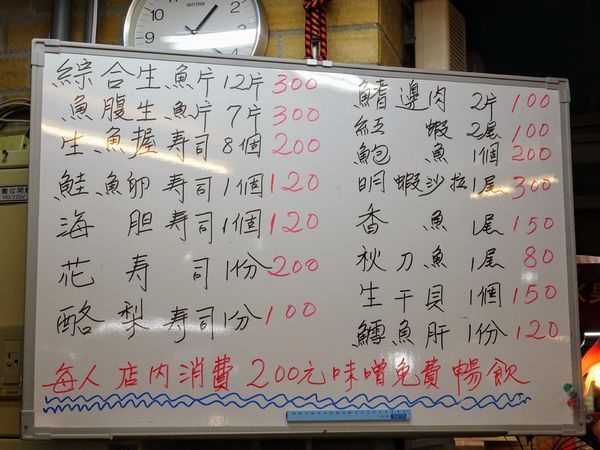 RHYTHM
綜合生魚片 12片 300
魚腹生魚片 7片 300
生魚握寿司 8個 200
鮭魚卵寿司 1個 120
海胆寿司 1個 120
花寿司 1份 200
酪梨寿司 1份 100
鰭邊肉 2片 100
紅蝦 2尾 100
鮑魚 1個 200
明蝦沙拉 1尾 300
香魚 1尾 150
秋刀魚 1尾 80
生干貝 1個 150
鱈魚肝 1份 120
每人店內消費200元味噌免費暢飲
110V/220V